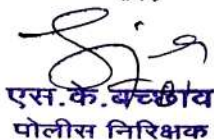 एस.के.बच्छाव
पोलीस निरिक्षक